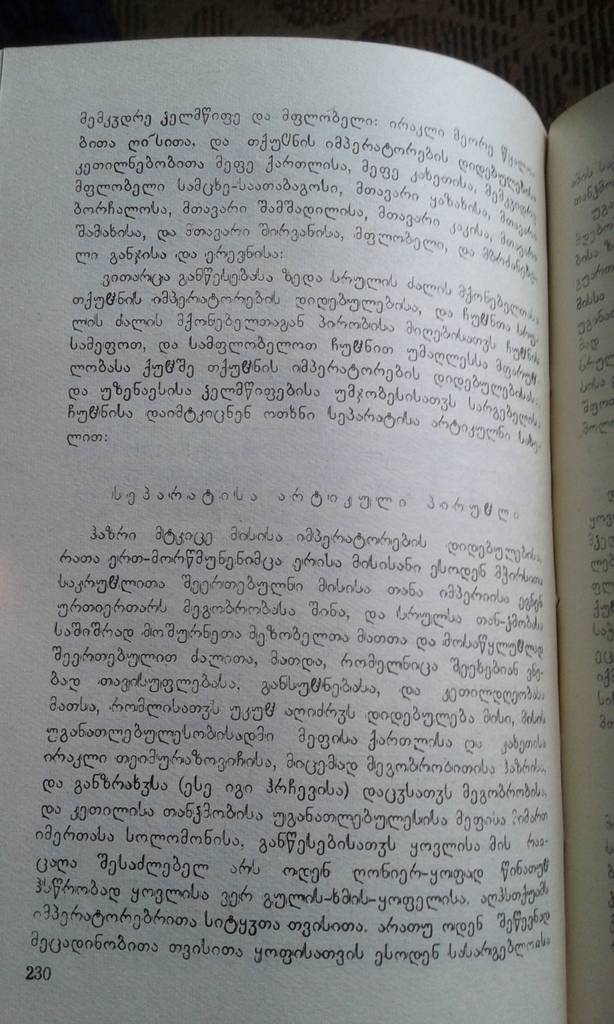 მემკჳდრე ჴელმწიფე და მფლობელი: ირაკლი მეორე
ბითა ღი˜სითა, და თქუჱნის იმპერატორების დიდებულების
კეთილნებობითა მეფე ქართლისა, მეფე კახეთისა, მემკჳდრე
მფლობელი სამცხე-საათაბაგოსი, მთავარი ყაზახისა, მთავარი
ბორჩალოსა, მთავარი შამშადილისა, მთავარი კაკისა, მთავარი
შამახისა, და მთავარი შირვანისა, მფლობელი, და მბრძანებე-
ლი განჯისა და ერევნისა:
ვითარცა განწესებასა ზედა სრულის ძალის მქონებელთა
თქუჱნის იმპერატორების დიდებულებისა, და ჩუჱნთა სრუ-
ლის ძალის მქონებელთაგან პირობისა მიღებისათჳს ჩუჱნის
სამეფოთ, და სამფლობელოთ ჩუჱნით უმაღლესსა მფარუჱ-
ლობასა ქუჱშე თქუჱნის იმპერატორების დიდებულებისასა.
და უზენაესისა ჴელმწიფებისა უმჯობესისათჳს სარგებელისა
ჩუჱნისა დაიმტკიცნენ ოთხნი სეპარატისა არტიკულნი სახე-
ლით:
სეპარატისა არტიკული პირუჱლი
ჰაზრი მტკიცე მისისა იმპერატორების დიდებულებისა,
რათა ერთ-მორწმუნენიმცა ერისა მისისანი ესოდენ მჭირსითა
საკრუჱლითა შეერთებულნი მისისა თანა იმპერიისა ეგნენ
ურთიერთარს მეგობრობასა შინა, და სრულსა თან-ჴმობასა
საშიშრად მოშურნეთა მეზობელთა მათთა და მოსაწყლუჱლად
შეერთებულით ძალითა, მათდა, რომელნიცა შეეხებიან ვნე-
ბად თავისუფლებასა, განსუჱნებასა, და კეთილდღეობასა
მათსა, რომლისათჳს უკუჱ აღიძრჳს დიდებულება მისი, მისის
უგანათლებულესობისადმი მეფისა ქართლისა და კახეთისა
ირაკლი თეიმურაზოვიჩისა, მიცემად მეგობრობითისა ჰაზრისა,
და განზრახჳსა (ესე იგი ჰრჩევისა) დაცჳსათჳს მეგობრობისა
და კეთილისა თანჴმობისა უგანათლებულესისა მეფისა მიმართ
იმერთასა სოლომონისა, განწესებისათჳს ყოვლისა მის რაი-
ცაღა შესაძლებელ არს ოდენ ღონიერ-ყოფად წინათუჱ
ჰსწრობად ყოვლისა ვერ გულის-ხმის-ყოფელისა. აღჰსთქუამს
იმპერატორებრითა სიტყჳთა თვისითა. არათუ ოდენ შეწევნად
მეცადინობითა თვისითა ყოფისათვის ესოდენ სასარგებლოისა
230